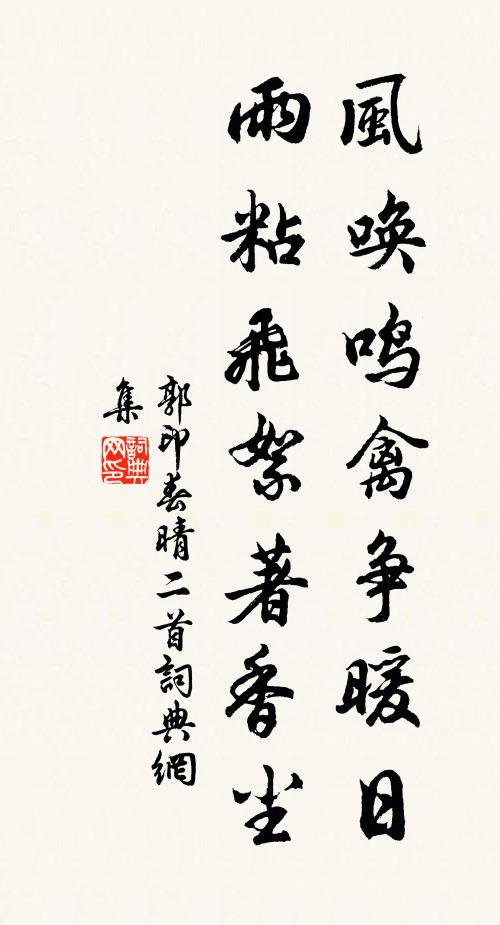 風唤鸣禽争暖日
雨粘飛絮著香尘
郭印春晴二首詞典網
集
詞典网印